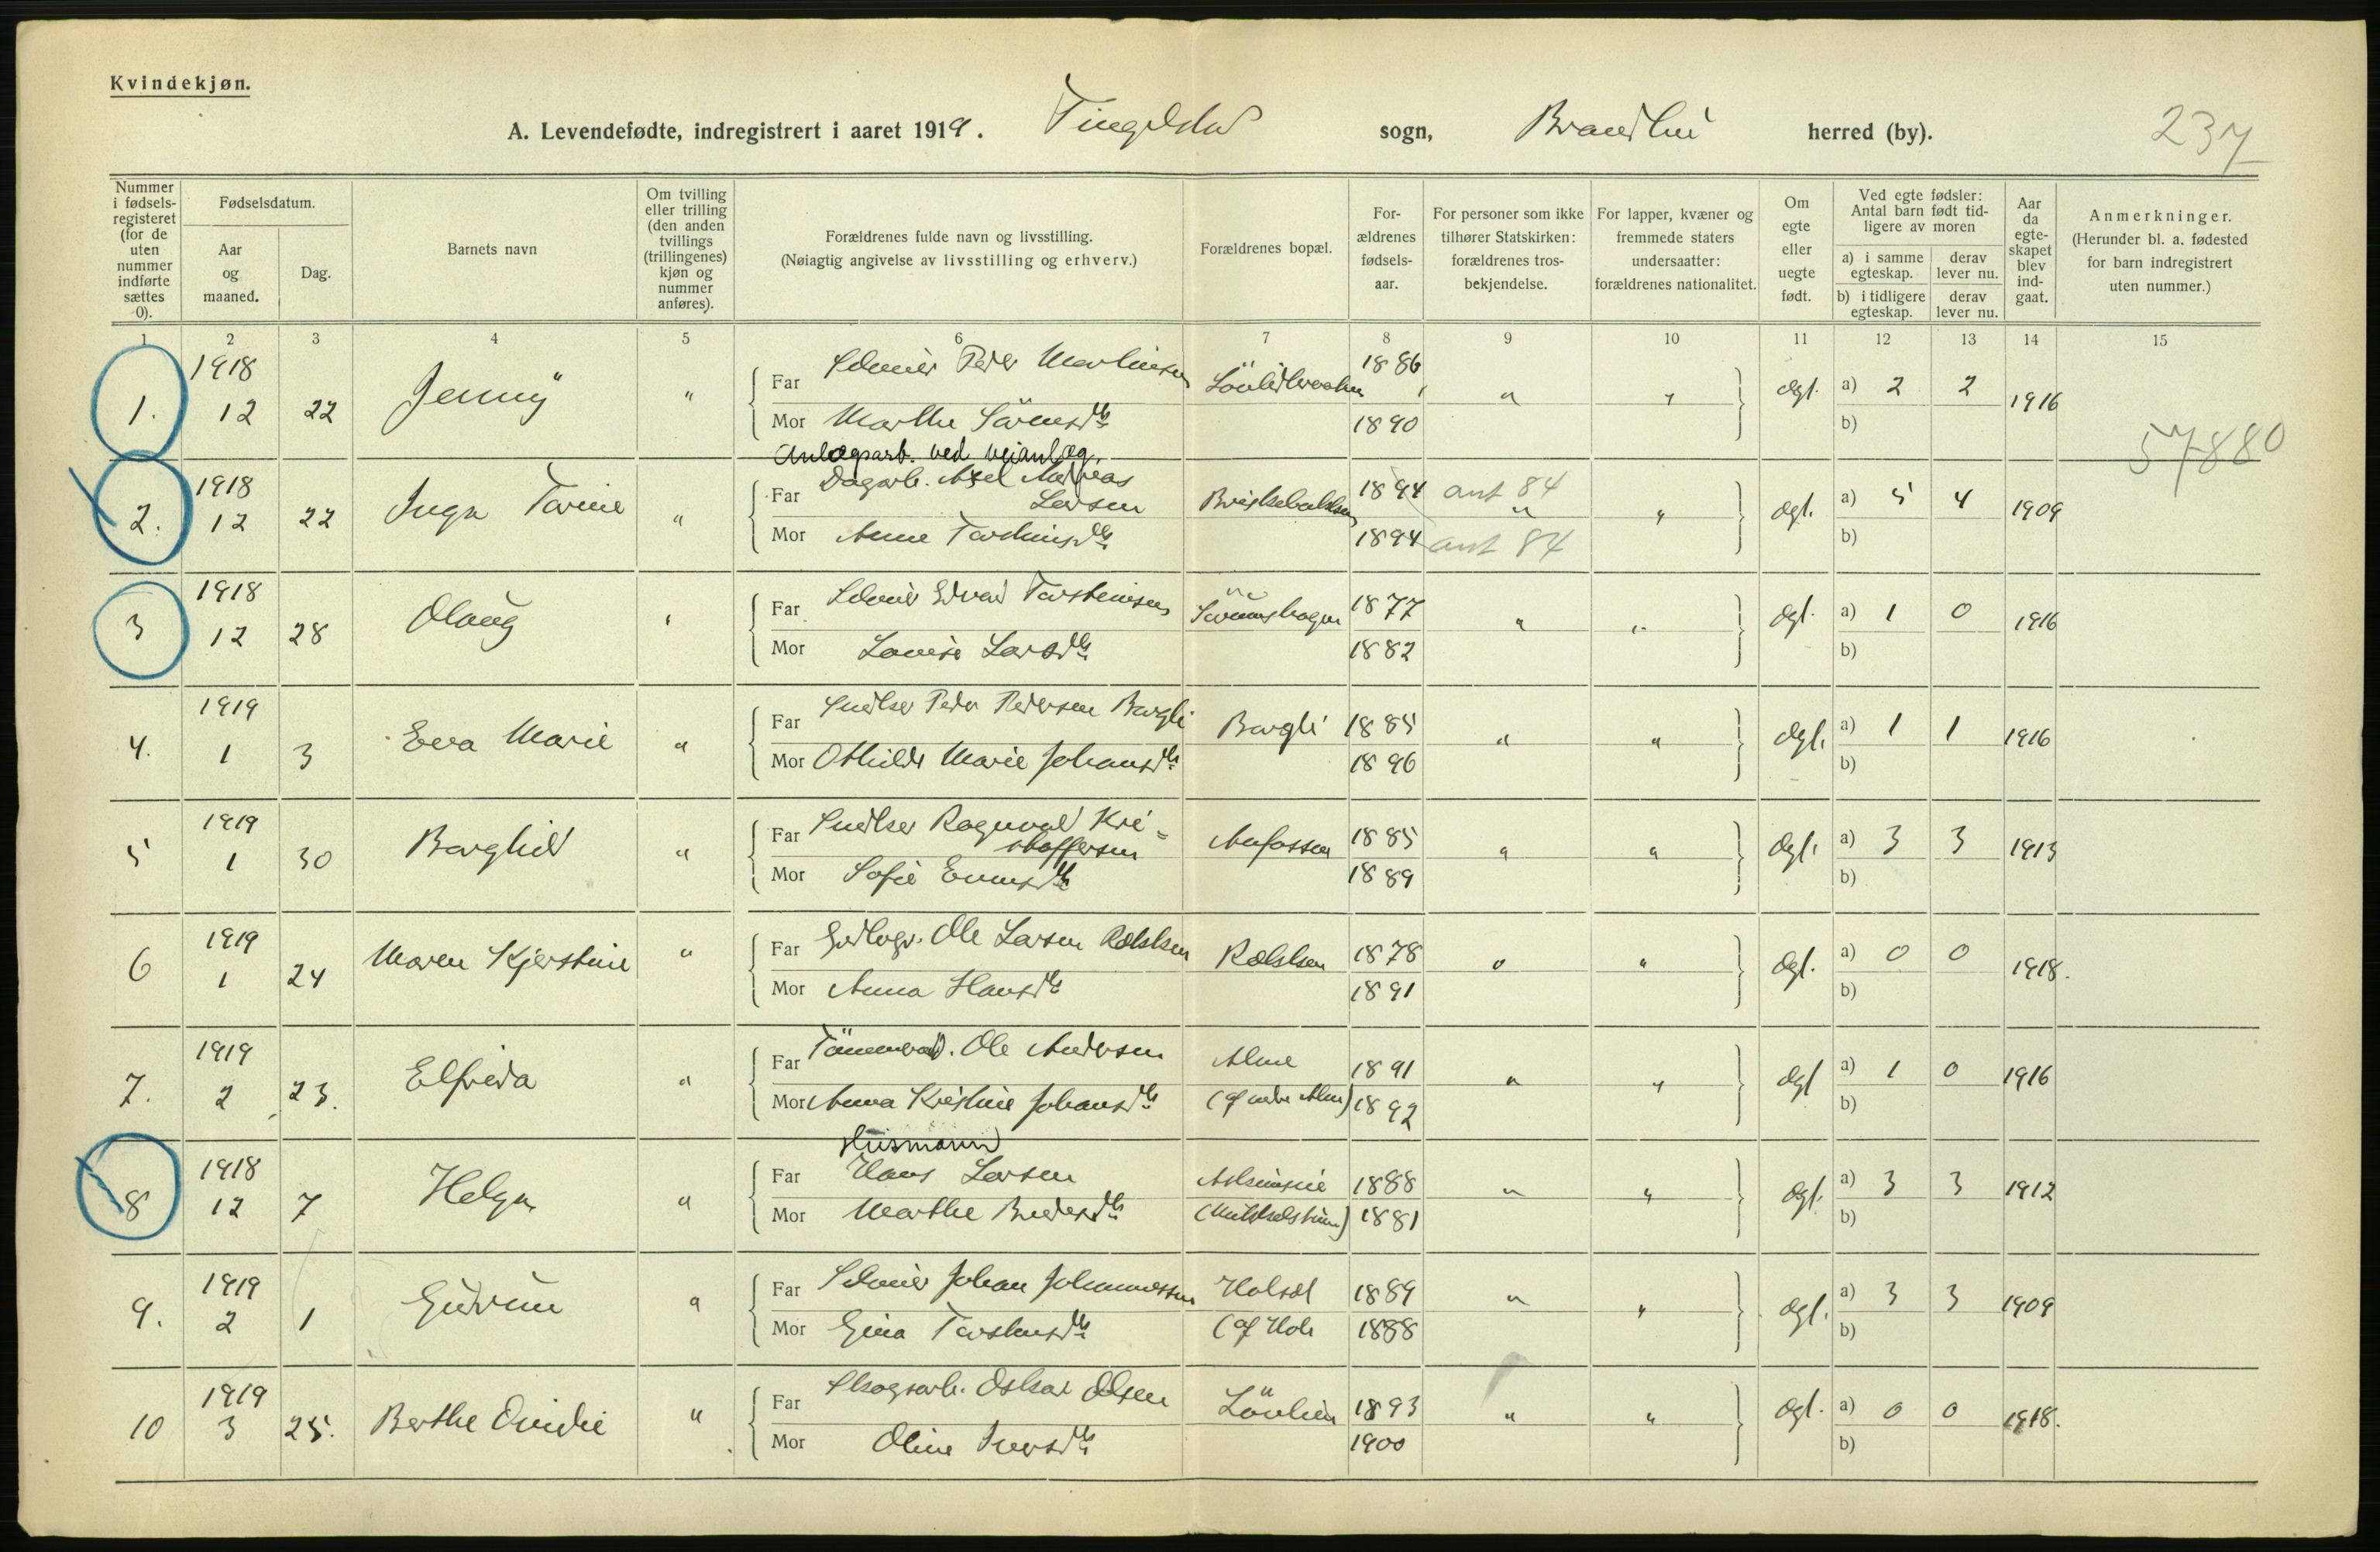 Kvindekjøn.
A. Levendefødte, indregistrert i aaret 1919. Tingelstad sogn, Brandbu herred (by). 237
Nummer i fødselsregisteret (for de uten nummer indførte sættes 0).
Fødselsdatum.
Aar og maaned.
Dag.
Barnets navn
Om tvilling eller trilling (den anden tvillings (trillingenes) kjøn og nummer anføres).
Forældrenes fulde navn og livsstilling.
(Nøiagtig angivelse av livsstilling og erhverv.)
Forældrenes bopæl.
For-ældrenes fødsels-aar.
For personer som ikke tilhører Statskirken: forældrenes tros-bekjendelse.
For lapper, kvæner og fremmede staters undersaatter: forældrenes nationalitet.
Om egte eller uegte født.
Ved egte fødsler: Antal barn født tid-ligere av moren
a) i samme egteskap. derav lever nu.
b) i tidligere egteskap. derav lever nu.
Aar da egte-skapet blev ind-gaat.
Anmerkninger.
(Herunder bl. a. fødested for barn indregistrert uten nummer.)
1 2 3 4 5 6 7 8 9 10 11 12 13 14 15
1. 1918 12 22 Jenny " Far Peder 1886 " " Ægt. a) 2 2 1916
Mor Marthe Sörensdtr 1890 b)
57880
Anlægsarb. ved veianlæg.
2. 1918 12 22 Inga " Far Dagarb. Axel Andreas
Larsen 1894 ant 84 " " Ægt. a) 5 4 1909
Mor Anne Torstensdtr 1894 ant 84 b)
3 1918 12 28 Olaug " Far Edvard Torstensen 1877 " " Ægt. a) 1 0 1916
Mor Lovise Larsdtr 1882 b)
4. 1919 1 3 Eva Marie " Far Snedker Peder Pedersen Bargli Bargli 1885 " " Ægt. a) 1 1 1916
Mor Othilde Marie Johansdtr 1896 b)
5 1919 1 30 Borghild " Far Snedker Ragnvald Kri=
stoffersen 1885 " " Ægt. a) 3 3 1913
Mor Sofie Evensdtr 1889 b)
6 1919 1 24 Maren Kjerstine " Far Ole Larsen Rækstøen 1878 " " Ægt. a) 0 0 1918.
Mor Anna Hansdtr 1891 b)
7. 1919 2 23. Elfrida " Far Ole Andersen Alme 1891 " " Ægt a) 1 0 1916
Mor Anna Kristine Johansdtr 1892 b)
Husmann
8 1918 12 7 Helga " Far Hans Larsen 1888 " " Ægt. a) 3 3 1912
Mor Marthe 1881 b)
9. 1919 2 1 Gudrun " Far Johan Johannessen 1889 " " Ægt. a) 3 3 1909
Mor Gina Torstensdtr 1888 b)
10 1919 3 25. Berthe " Far Skogsarb. Oskar Olsen Lövlien 1893 " " Ægt. a) 0 0 1918.
Mor Oline Iversdtr 1900 b)